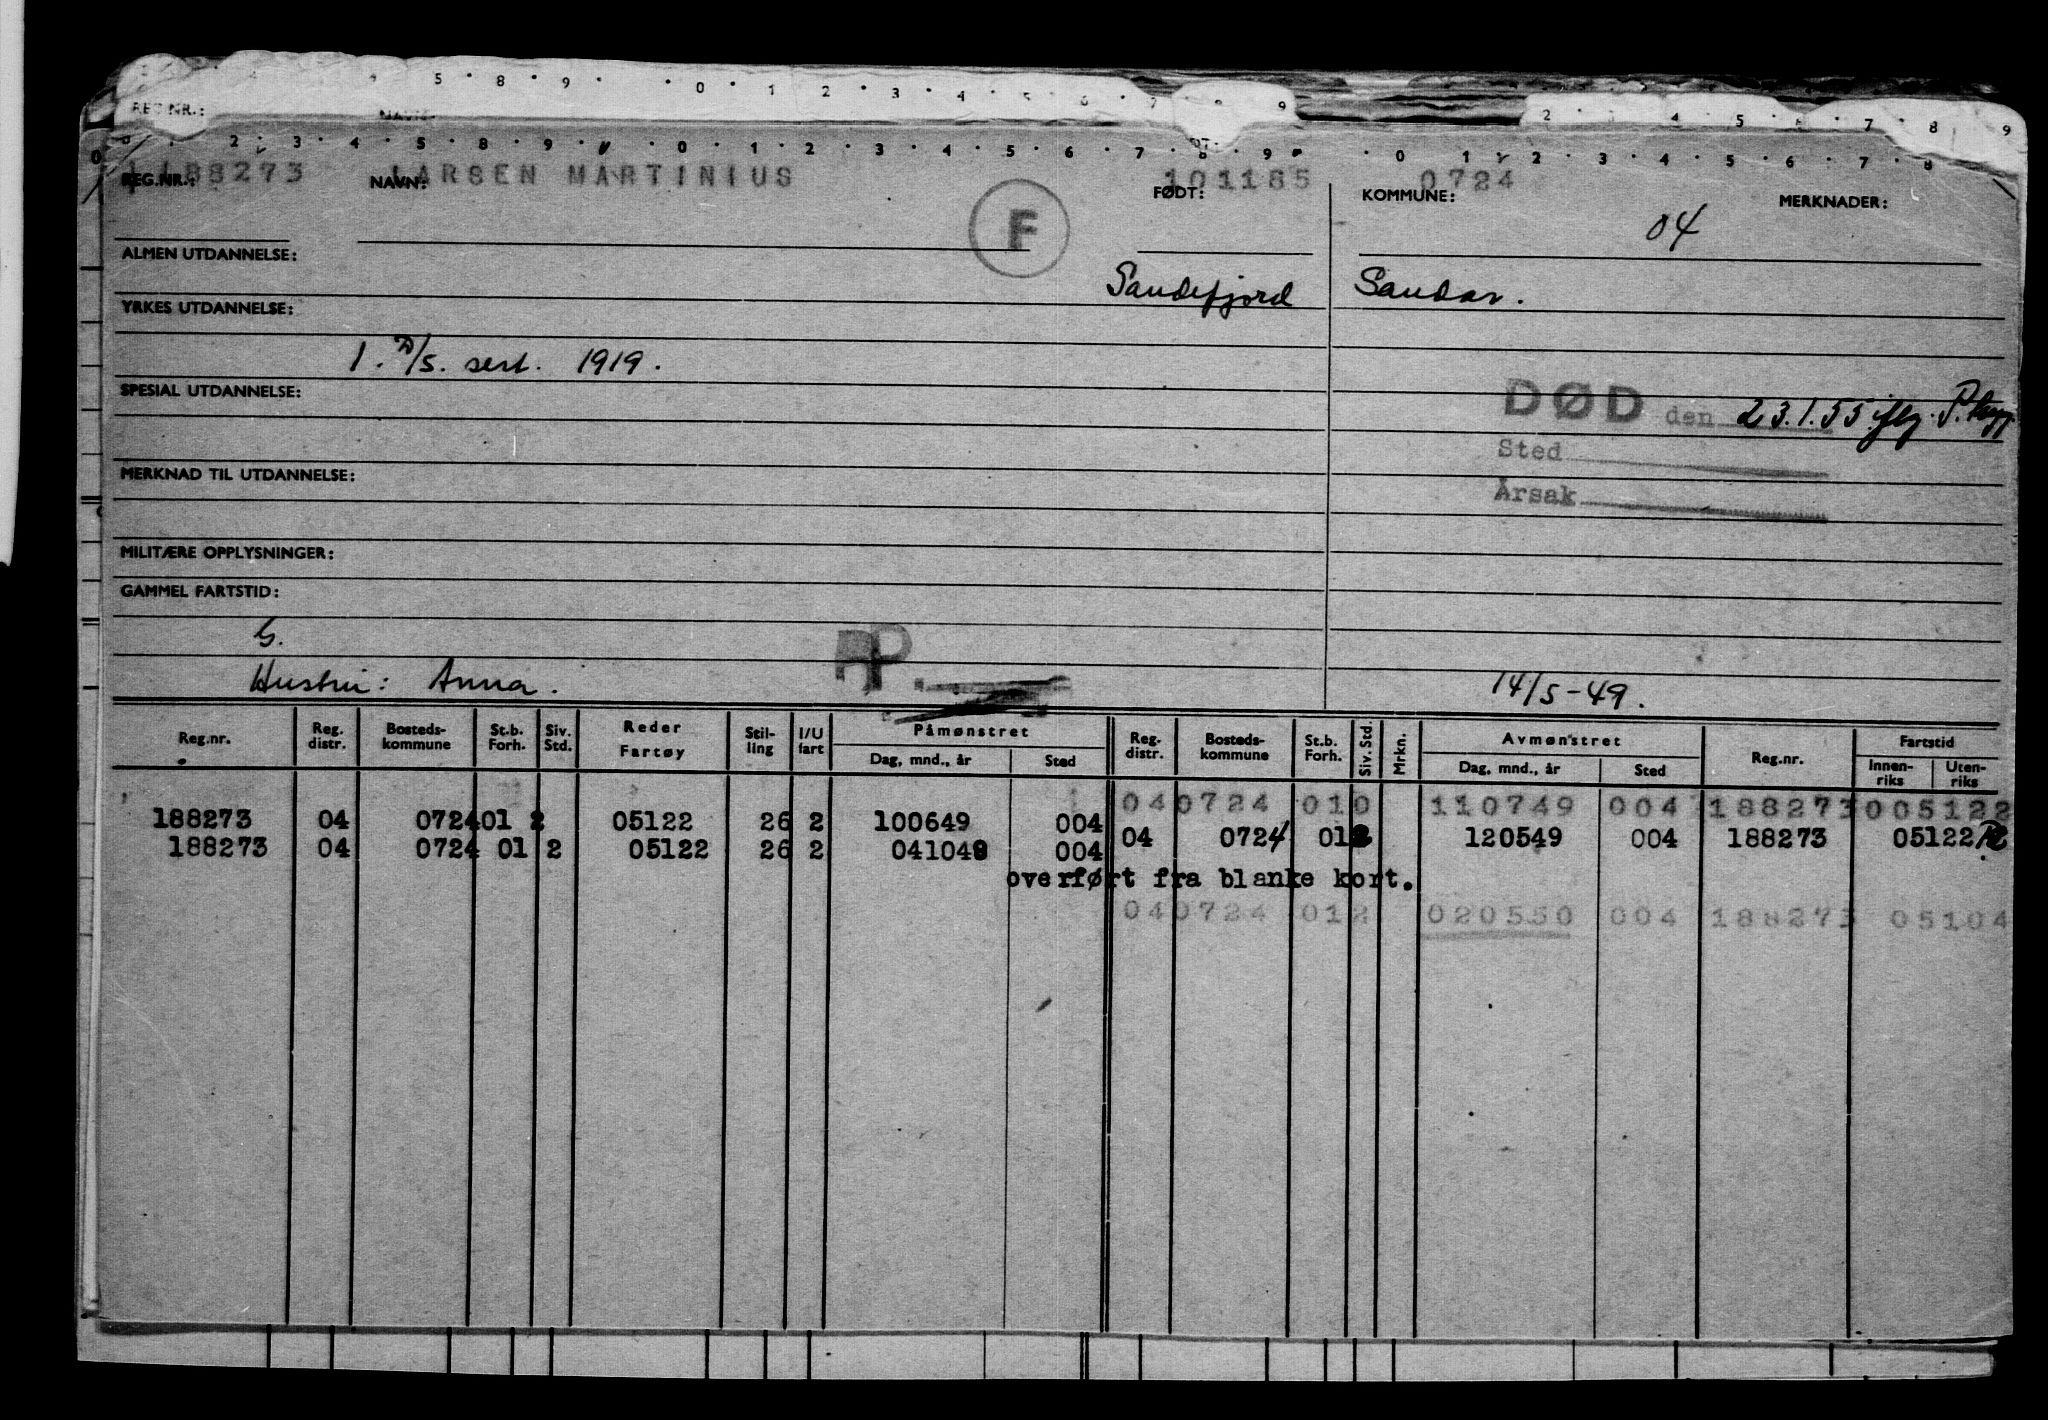 5 8 9 0 1 2 3 4 5 6 7 8 9 2 4 5 6 7 8 9
REG NR.: NAVN
0 2 3 4 5 8 9 0 1 2 3 4 5 6 7 8 9 0 1 2 3 4 5 6 7 8
188273 LARSEN MARTINIUS 101185 0724
REG.NR.: NAVN: FØDT: KOMMUNE: MERKNADER:
F 04
ALMEN UTDANNELSE:
Sandefjord Sandar.
YRKES UTDANNELSE:
1. D/S. sert. 1919.
SPESIAL UTDANNELSE:
DØD den 23.1.55 iflg. P.trygd
Sted
Årsak
MERKNAD TIL UTDANNELSE:
MILITÆRE OPPLYSNINGER:
GAMMEL FARTSTID:
G.
Hustru: Anna. 14/5-49.
Reg.nr. Reg. distr. Bosteds-kommune St.b. Forh. Siv. Std. Reder Fartøy Stil-ling I/U fart Påmønstret Dag, mnd., år Sted Reg. distr. Bosteds-kommune St.b. Forh. Siv. Std. Mrkn. Avmønstret Dag, mnd., år Sted Reg.nr. Fartstid Innen-riks Uten-riks
040724 010 110749 004 188273 005122
188273 04 0724 01 2 05122 26 2 100649 004
04 0724 012 120549 004 188273 05122
188273 04 0724 01 2 05122 26 2 041048 004
overført fra blanke kort.
040724 012 020550 004 188273 05104